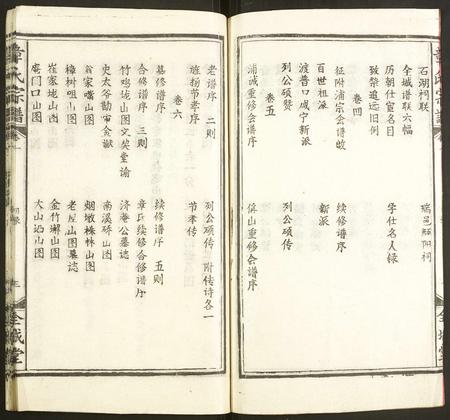 章氏宗譜
石湖祠联
瑞邑
祠
全城谱联六幅
历朝仕宦名目
学仕名人录
致祭追远旧例
卷四
征附浦宗会谱故
续修谱序
百世祖派
新派
渡普口咸宁新派
列公硕赞
列公硕传
卷五
浦城重修会谱序
保山重修会谱序
老谱序 二则
列公硕传 附传诗各一
旌扬节孝序
节孝传
卷六
篡修谱序
续修谱序 五则
合修谱序 三则
章氏续修合修谱序
竹鸣垅山图文契堂谕
济庵公墓誌
史太爷勘审金谳
南溪硚山图
翁家嘴山图
烟墩株林山图
樟树咀山图
老屋山图墓誌
崔家垅山图
金竹塝山图
庵门口山图
大山
山图
章氏宗譜
卷
目录
三
全城堂
全城堂